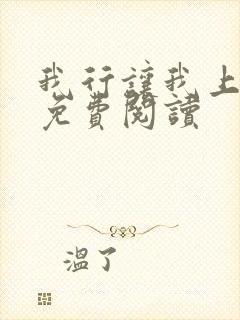 我行讓我上
免費閱讀
溫了